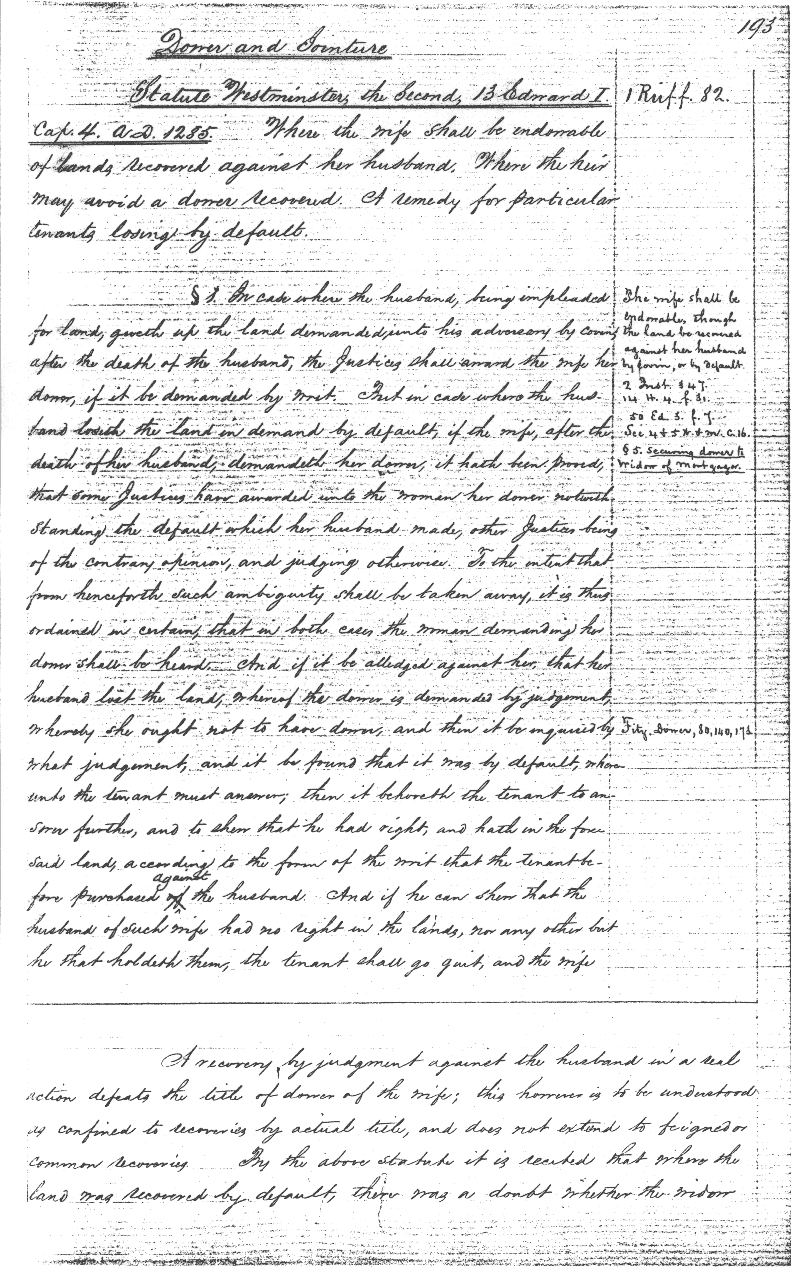 193
Dower and Jointure
Statute Westminster, the Second, 13 Edward I
1 Ruff. 82.
Cap. 4. A.D. 1285. Where the wife shall be endowable
of lands recovered against her husband. Where the heir
may avoid a dower recovered. A remedy for particular
tenants losing by default.
§ 1. In case where the husband, being impleaded
for land, giveth up the land demanded, unto his adversary by covin;
after the death of the husband, the Justices shall award the wife her
dower, if it be demanded by writ. But in case where the hus-
band loseth the land in demand by default, if the wife, after the
death of her husband, demandeth her dower, it hath been proved,
that some Justices have awarded unto the woman her dower notwith
standing the default which her husband made, other Justices being
of the contrary opinion, and judging otherwise. To the intent that
from henceforth such ambiguity shall be taken away, it is thus
ordained in certain, that in both cases the woman demanding her
dower shall be heard. And if it be alledged against her, that her
husband lost the land, whereof the dower is demanded by judgement,
whereby she ought not to have dower, and then it be enquired by
what judgement, and it be found that it was by default, where
unto the tenant must answer; then it behoveth the tenant to an-
swer further, and to shew that he had right, and hath in the fore
said land, according to the form of the writ that the tenant be-
against
fore purchased of the husband. And if he can shew that the
husband of such wife had no right in the lands, nor any other but
he that holdeth them, the tenant shall go quit, and the wife
The wife shall be
endowable, though
the land be recovered
against her husband
by covin, or by default.
2 Inst. 347.
14 H. 4. f. 31.
50 Ed. 3. f. 7.
See 4 & 5 W. & M. C. 16.
§ 5. securing dower to
widow of mortgagor.
Fitz. Dower, 80, 140, 173.
A recovery, by judgment against the husband in a real
action defeats the title of dower of the wife; this however is to be understood
as confined to recoveries by actual title, and does not extend to feigned or
common recoveries. By the above statute it is recited that where the
land was recovered by default, there was a doubt whether the widow